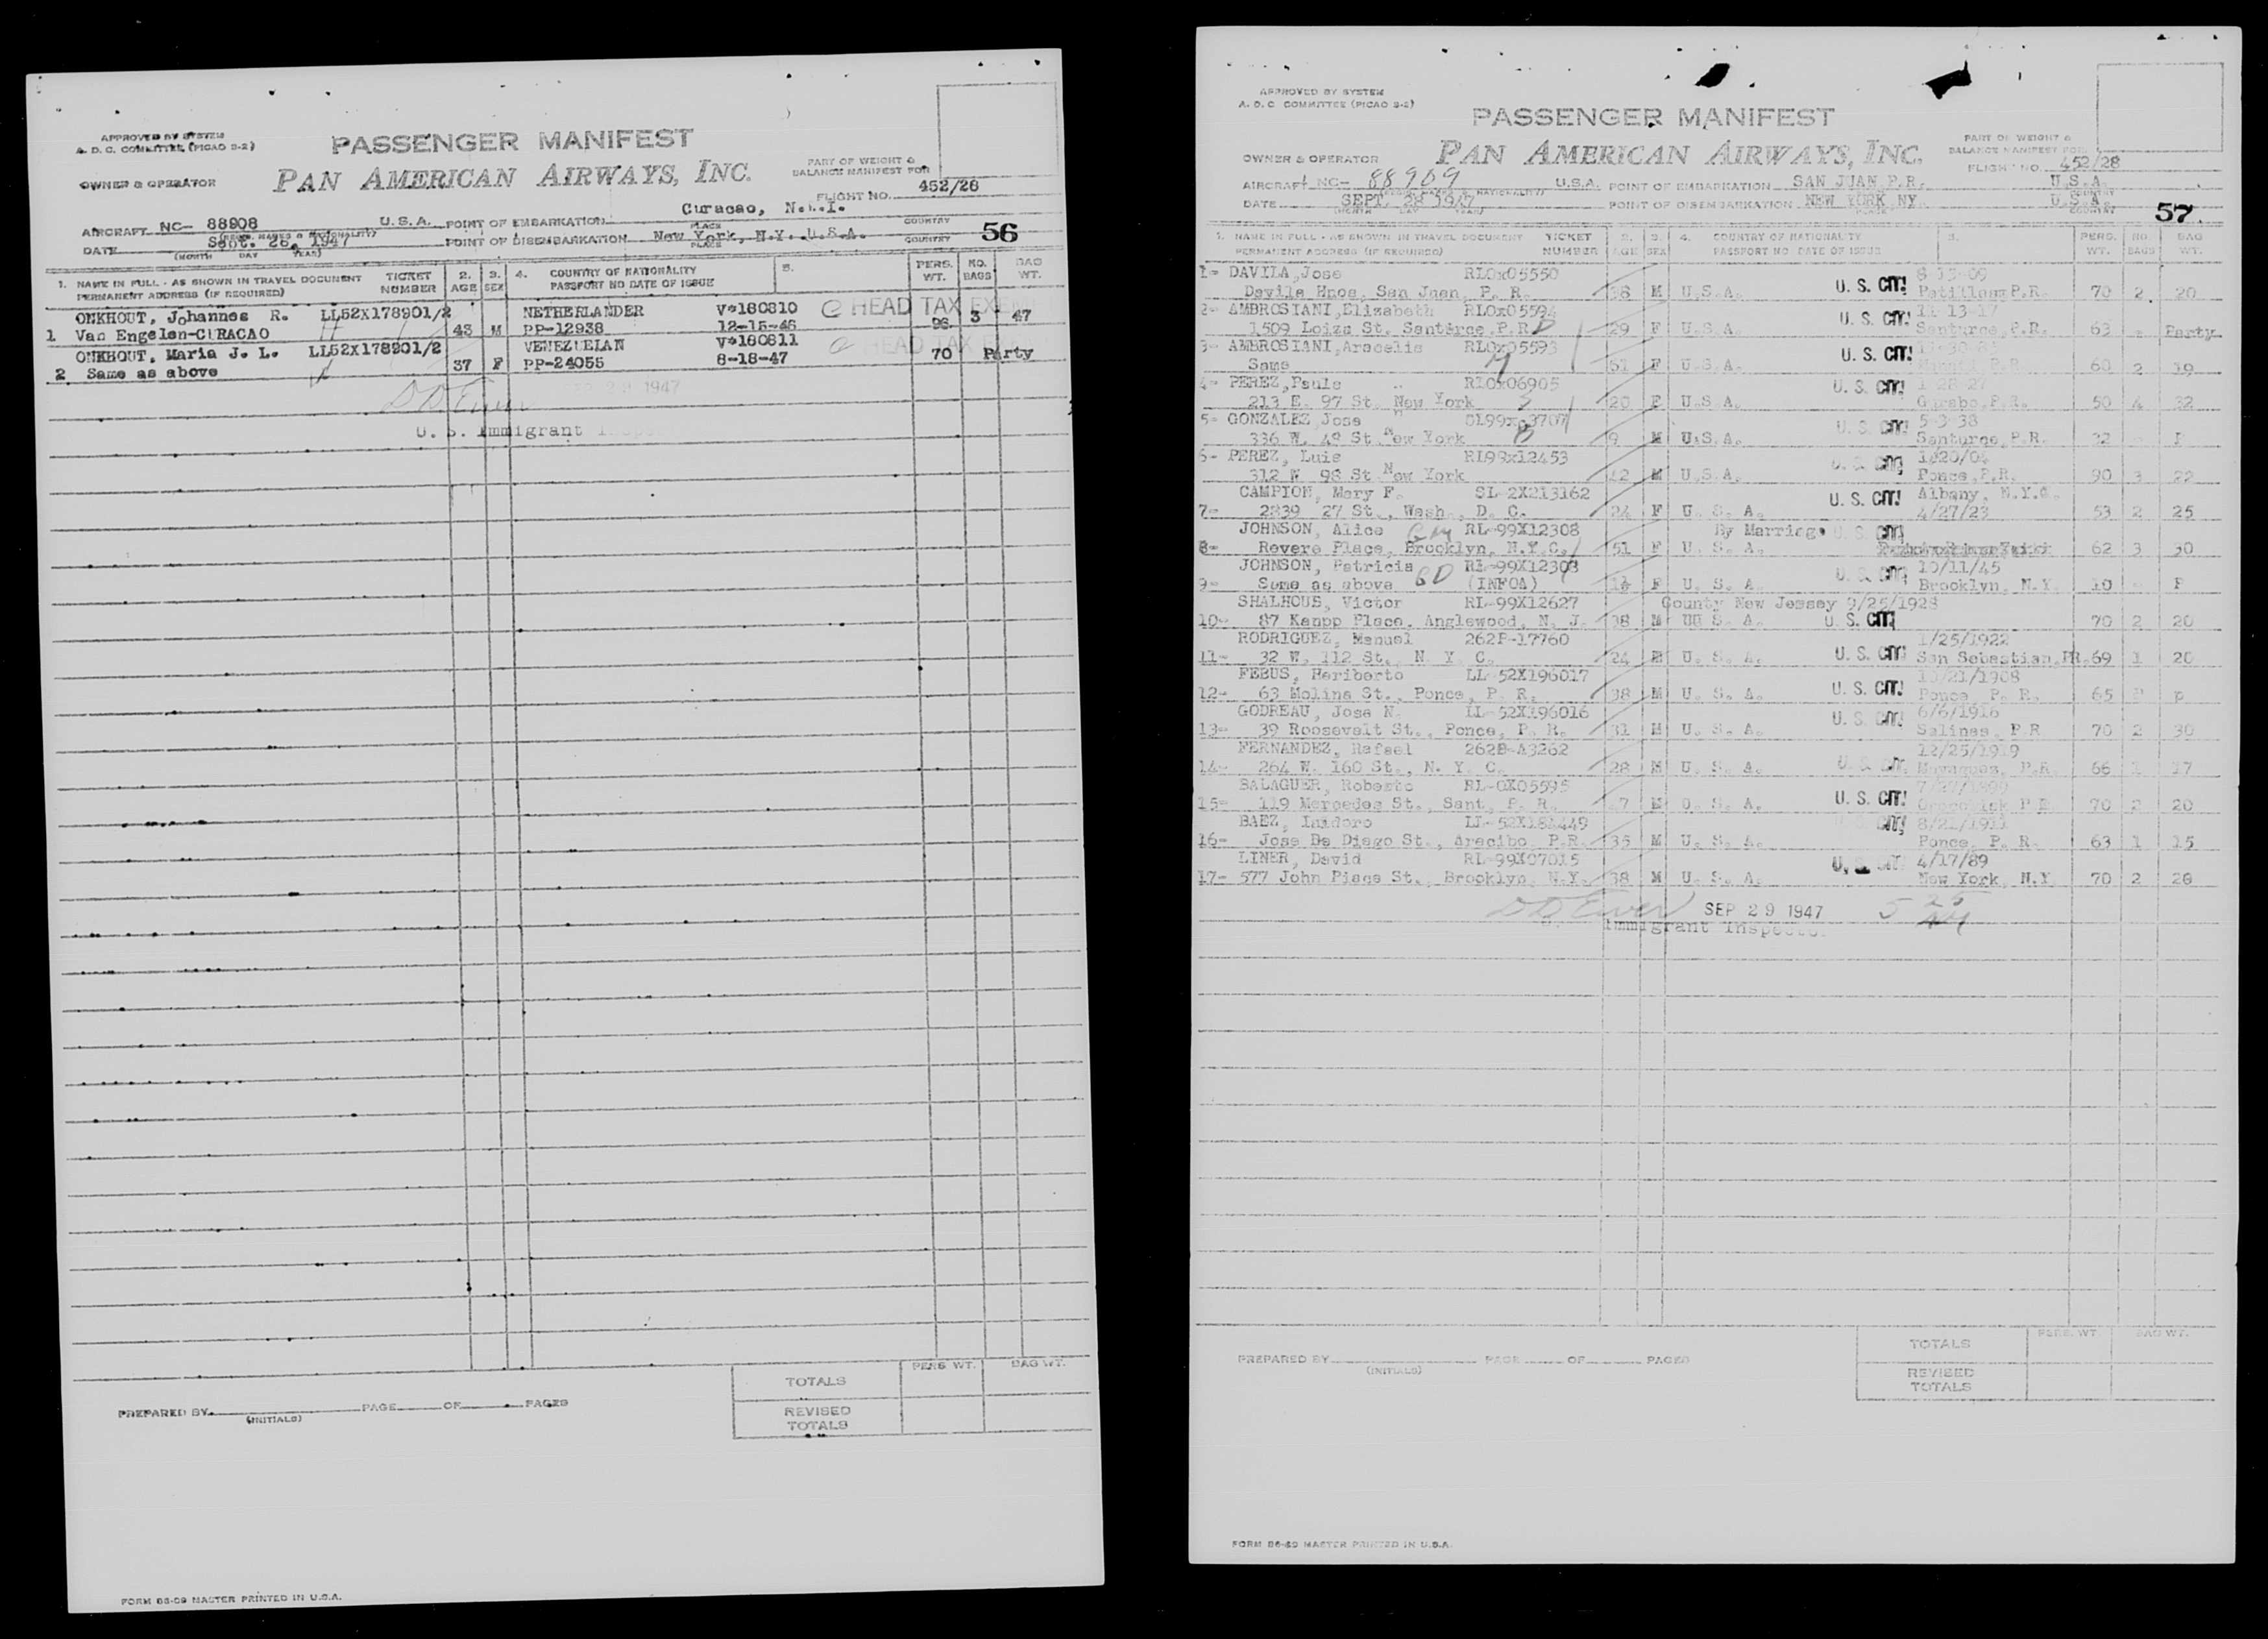 APPROVED BY SYSTEM
A. D. C. COMMITTEE (PICAO 2-2)
PASSENGER MANIFEST
PAN AMERICAN AIRWAYS, INC.
OWNER & OPERATOR
PART OF WEIGHT &
BALANCE MANIFEST FOR
FLIGHT NO. 452/28
AIRCRAFT NC- 88908 U.S.A. POINT OF EMBARKATION Curacao, N.W.I.
DATE Sept. 28, 1947 POINT OF DISEMBARKATION New York, N.Y. U.S.A.
(MONTH DAY YEAR) PLACE COUNTRY
56
1. NAME IN FULL - AS SHOWN IN TRAVEL DOCUMENT TICKET 2. 3. 4. COUNTRY OF NATIONALITY 5. PERS. NO. BAG
PERMANENT ADDRESS (IF REQUIRED) NUMBER AGE SEX PASSPORT NO DATE OF ISSUE WT. BAGS WT.
ONKHOUT, Johannes R. LL52X178901/2 NETHERLANDER V*180810 HEAD TAX
1 Van Engelen-CURACAO 43 M PP-12938 12-15-46 3 47
ONKHOUT, Maria J. L. LL52X178901/2 VENEZUELAN V*180811 HEAD TAX
2 Same as above 37 F PP-24055 8-18-47 70 Party
1947
U. S. Immigrant
TOTALS PERS WT. BAG WT.
REVISED
TOTALS
PREPARED BY PAGE OF PAGES
(INITIALS)
FORM 86-69 MASTER PRINTED IN U.S.A.
APPROVED BY SYSTEM
A. D. C. COMMITTEE (PICAO 2-2)
PASSENGER MANIFEST
PAN AMERICAN AIRWAYS, INC.
OWNER & OPERATOR
PART OF WEIGHT &
BALANCE MANIFEST FOR
FLIGHT NO. 452/28
AIRCRAFT NC- 88909 U.S.A. POINT OF EMBARKATION SAN JUAN P.R. U.S.A.
DATE SEPT. 28 1947 POINT OF DISEMBARKATION NEW YORK NY. U.S.A.
(MONTH DAY YEAR) PLACE COUNTRY
57
1. NAME IN FULL - AS SHOWN IN TRAVEL DOCUMENT TICKET 2. 3. 4. COUNTRY OF NATIONALITY 5. PERS. NO. BAG
PERMANENT ADDRESS (IF REQUIRED) NUMBER AGE SEX PASSPORT NO DATE OF ISSUE WT. BAGS WT.
1- DAVILA, Jose RL0x05550 8-13-09
Davila Hnos, San Juan, P. R. 38 M U.S.A. U. S. CIT! Patillas P.R. 70 2 20
2- AMBROSIANI, Elizabeth RL0x05594
1509 Loiza St. Santurce, P.R. 29 F U.S.A. U. S. CIT! Santurce, P.R. 63 - Party
3- AMBROSIANI, Aracelis RL0x05593
Same 51 F U.S.A. U. S. CIT! 60 2 19
4- PEREZ, Paula RL0x06905 1-28-27
213 E. 97 St. New York 20 F U.S.A. U. S. CIT! Gurabo, P.R. 50 4 32
5- GONZALEZ Jose 5-3-38
336 W. 48 St New York 9 M U.S.A. U. S. CIT! Santurce, P.R. 32
6- PEREZ, Luis RL99x12453
312 W 98 St New York 42 M U.S.A. U. S. CIT! Ponce, P.R. 90 3 22
CAMPION, Mary F. SL-2X213162 Albany, N.Y.
7- 2839 27 St., Wash., D. C. 24 F U. S. A. U. S. CIT! 4/27/23 53 2 25
JOHNSON, Alice RL-99X12308 By Marriage U. S. CIT!
8- Revere Place, Brooklyn, N.Y.C. 51 F U. S. A. 62 3 30
JOHNSON, Patricia RL-99X12308 10/11/45
9- Same as above (INFOA) F U. S. A. U. S. CIT! Brooklyn, N.Y. 10 - P
SHALHOUB, Victor RL-99X12627 County New Jessey 9/25/1928
10- 87 Knapp Place, Anglewood, N. J. 38 M U. S. A. U. S. CIT! 70 2 20
RODRIGUEZ, Manuel 262P-17760 1/25/1922
11- 32 W. 112 St., N. Y. C. 24 M U. S. A. U. S. CIT! San Sebastian, PR. 69 1 20
FEBUS, Heriberto LL-52X196017 10/21/1908
12- 63 Molina St., Ponce, P. R. 38 M U. S. A. U. S. CIT! Ponce P. R. 65 P
GODREAU, Jose N. LL-52X196016 6/6/1916
13- 39 Roosevelt St., Ponce, P. R. 31 M U. S. A. U. S. CIT! Salinas, P.R 70 2 30
FERNANDEZ, Rafael 262B-A3262 12/25/1919
14- 264 W. 160 St., N. Y. C. 28 M U. S. A. U. S. CIT! Mayaguez, P.R. 66 1 17
BALAGUER, Roberto RL-0X05595
15- 119 Mercedes St., Sant, P. R. M U. S. A. U. S. CIT! 70 2 20
BAEZ, Isidoro 8/21/1911
16- Jose De Diego St., Arecibo, P.R. 35 M U. S. A. CIT! Ponce, P. R. 63 1 15
LINER, David RL-99X07015 4/17/89
17- 577 John Piage St., Brooklyn, N.Y. 38 M U. S. A. U. S. CIT New York, N.Y 70 2 20
SEP 29 1947
Immigrant Inspector
TOTALS PERS. WT. BAG WT.
REVISED
TOTALS
PREPARED BY PAGE OF PAGES
(INITIALS)
FORM 86-69 MASTER PRINTED IN U.S.A.